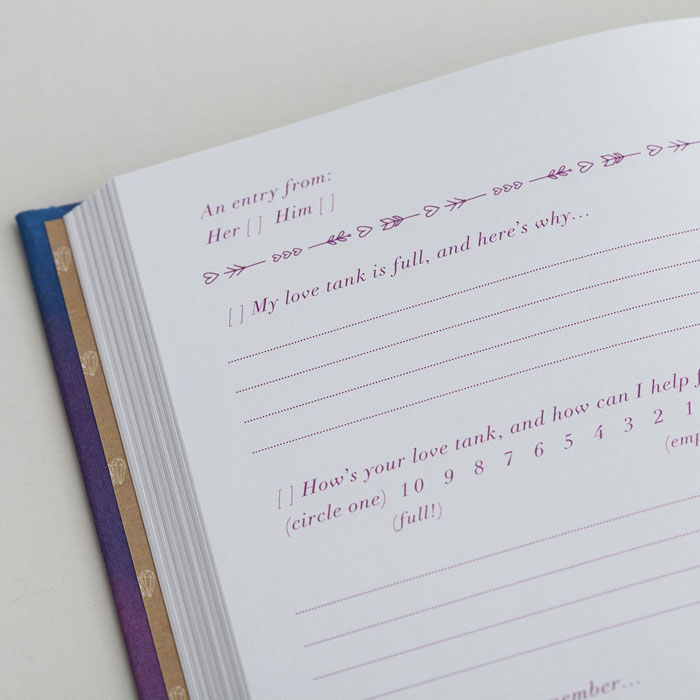 An entry from:
Her [ ] Him [ ]
[ ] My love tank is full, and here's why...
[ ] How's your love tank, and how can I help
(circle one) 10 9 8 7 6 5 4 3 2 1
(full!)